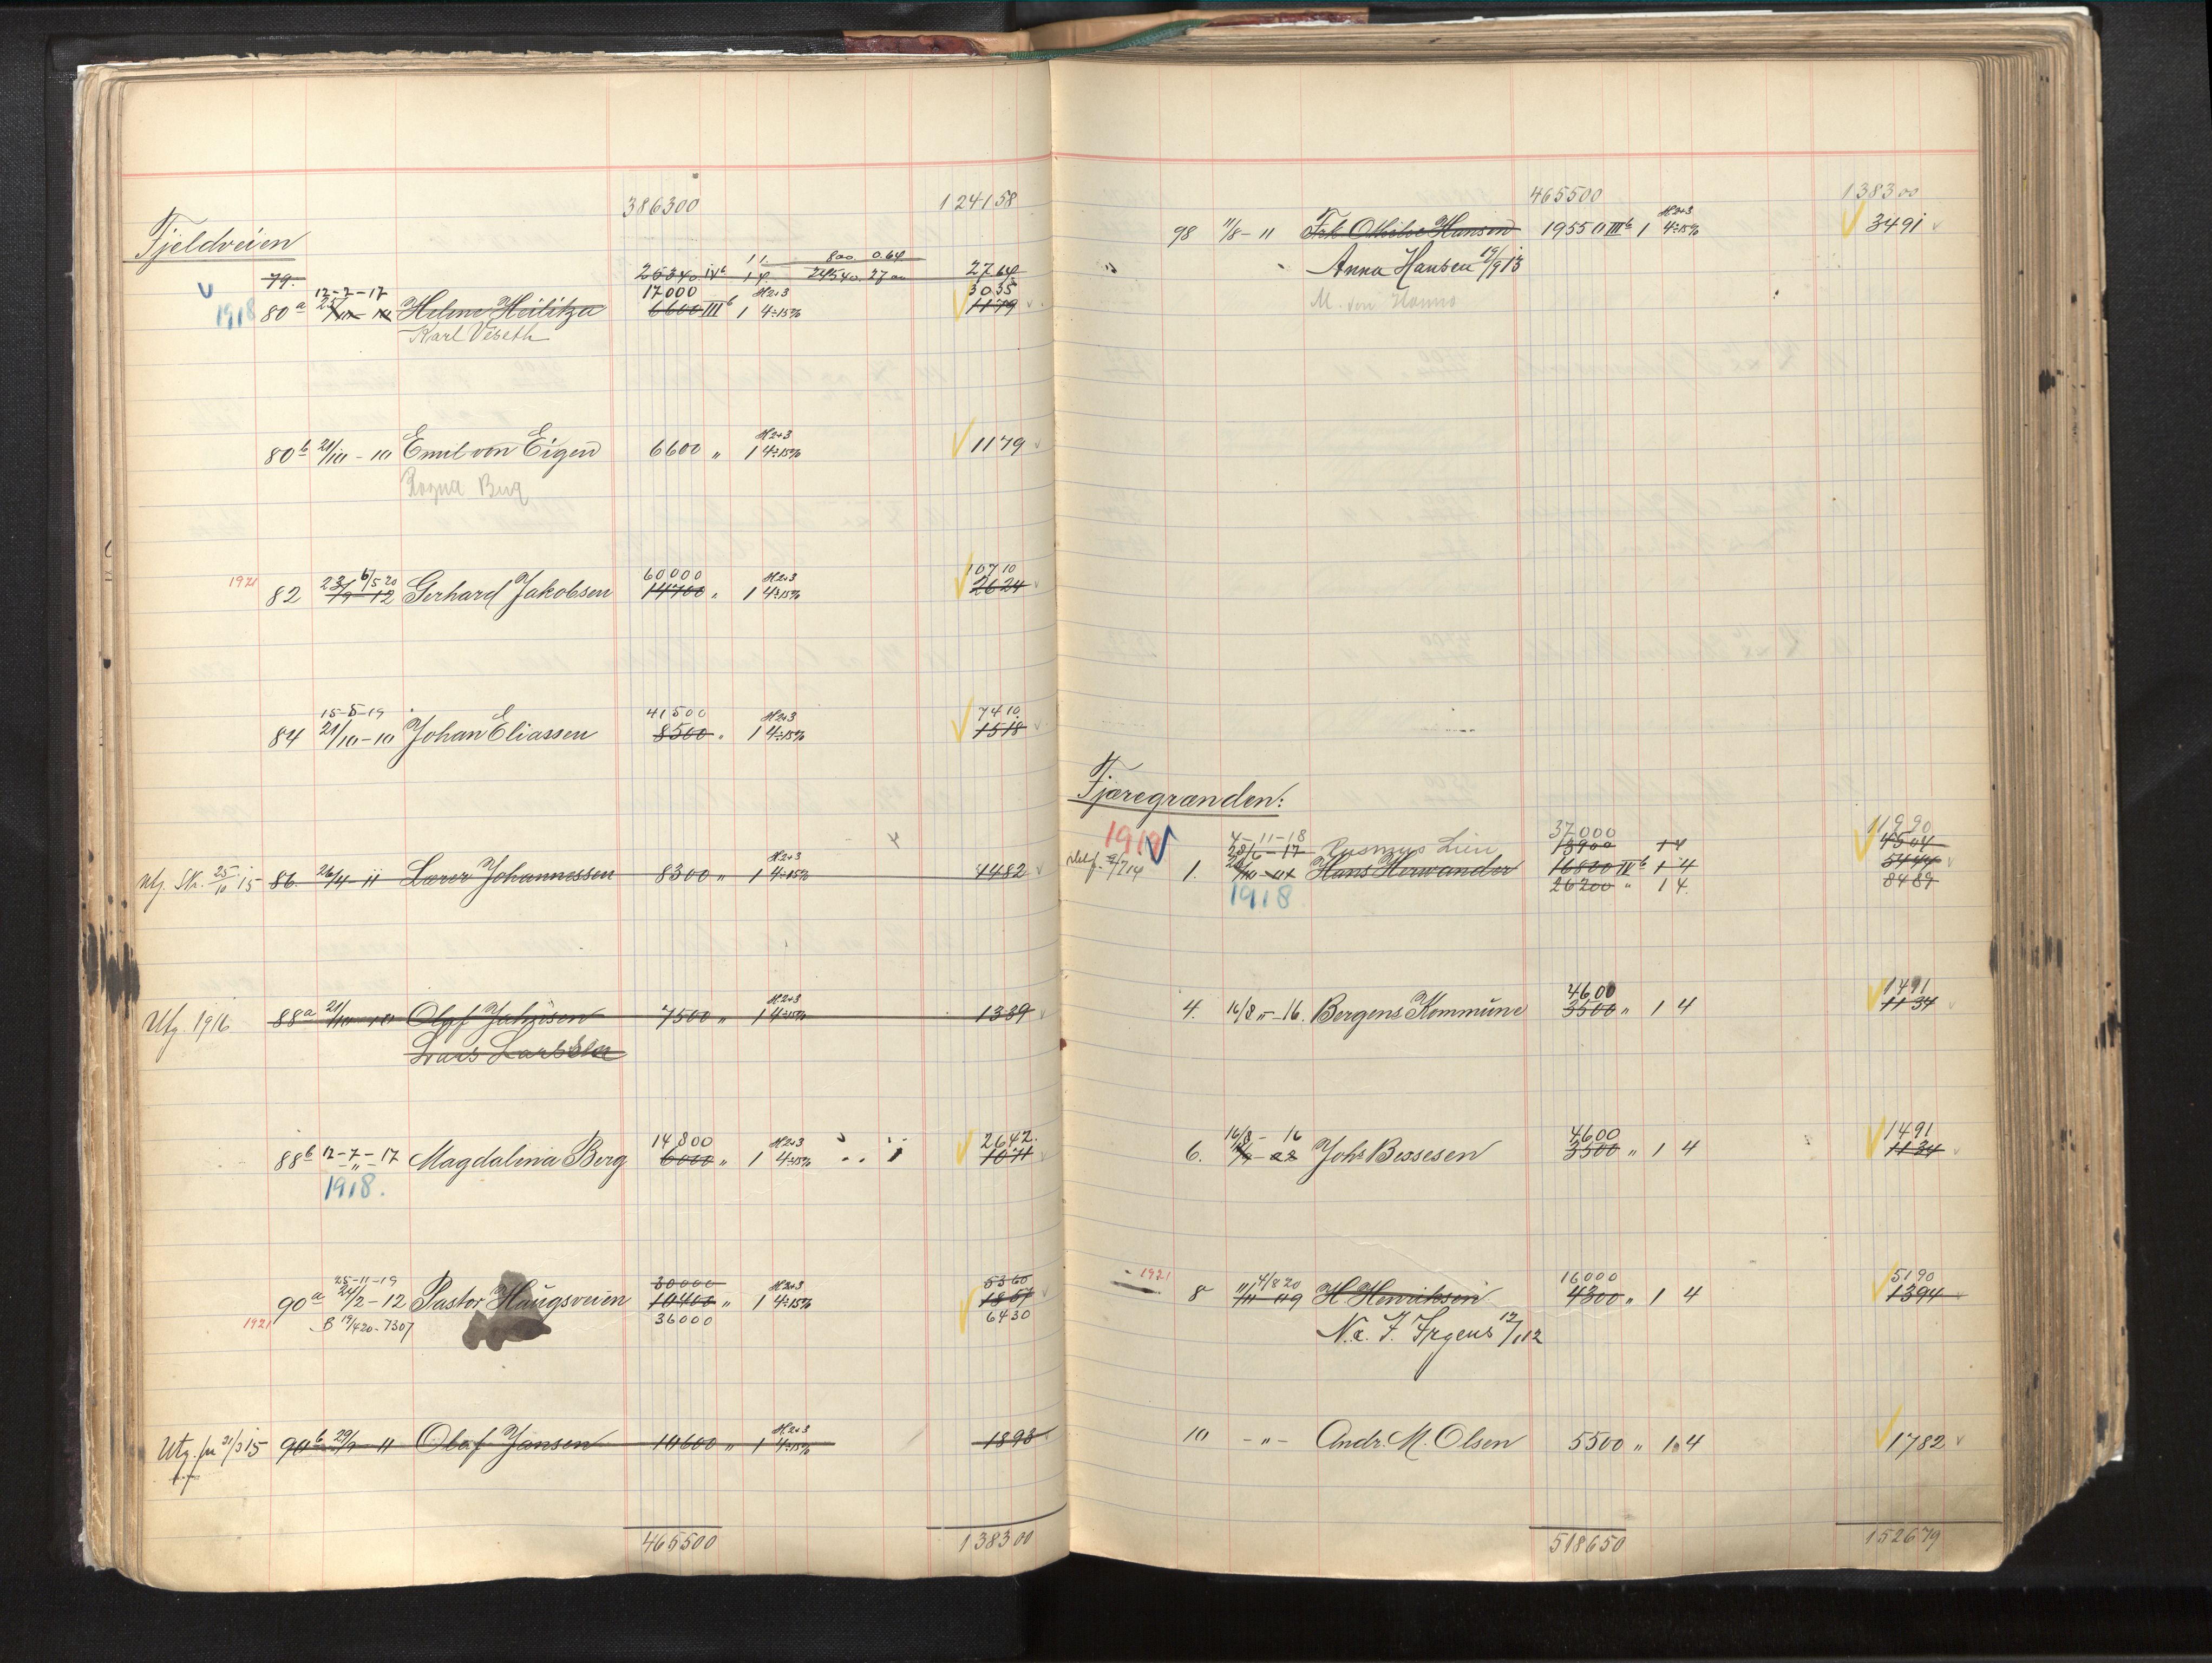 386300 124158
Fjeldveien
11. 800. 0.64
79. 26340 IVb 1 4. 24540. 27 2764
12-2-17 17000 H2+3 3035
1918 80a Helene Heilitza 6600 IIIb 1 4÷15% 1179
Karl Veseth
H2+3
80b 21/10 - 10 Emil von Eigen 6600 " 1 4÷15% 1179
6/5 20 60000 H2+3 10710
1921 82 23/9-12 Gerhard Jakobsen 14700 " 1 4÷15% 2624
15-5-19 41500 H2+3 7410
84 21/10-10 Johan Eliassen 8500 " 1 4÷15% 1518
4
H2+3
Utg. Sk. 25/10 15 86. 26/4 11 Lærer Johannessen 8300 " 1 4÷15% 1482
H2+3
Utg. 1916 88a 21/10 10 Olaf 7500 " 1 4÷15% 1339
Lars
14800 H2+3 2642
88b 12-7-17 Magdalena Berg 6000 " 1 4÷15% 1071
1918.
25-11-19 30000 H2+3 5360
90a 24/2-12 Pastor Haugsveien 10400 " 1 4÷15% 1857
1921 B 19/4 20-7307 36000 6430
H2+3
Utg. 31/3 15 90b 29/9 11 Olaf Jansen 10600 " 1 4÷15% 1893
465500 138300
465500 138300
H2+3
98 11/8-11 Frk Othilie Hansen 19550 IIIb 1 4÷15% 3491
" Anna Hansen 19/9 13
M. von Hanno
Fjæregrænden:
1919 4-11-18 37000 11990
28/6-17 Rasmus Lien 13900 1 4 4504
1. Hans Herwander 16800 IVb 1 4 5444
1918 26200 " 1 4. 8489
4600 1491
4. 16/8 "-16. Bergens Kommune 3500 " 1 4 1134
16/8- 16 4600 1491
6. Johs Bessesen 3500 " 1 4 1134
1921 4/8 20 16000 5190
8 11/11 09 H. Henriksen 4300 " 1 4 1394
N. J. Irgens 12/1 12
10 -"- Andr. M. Olsen 5500 " 1 4 1782
518650 152679